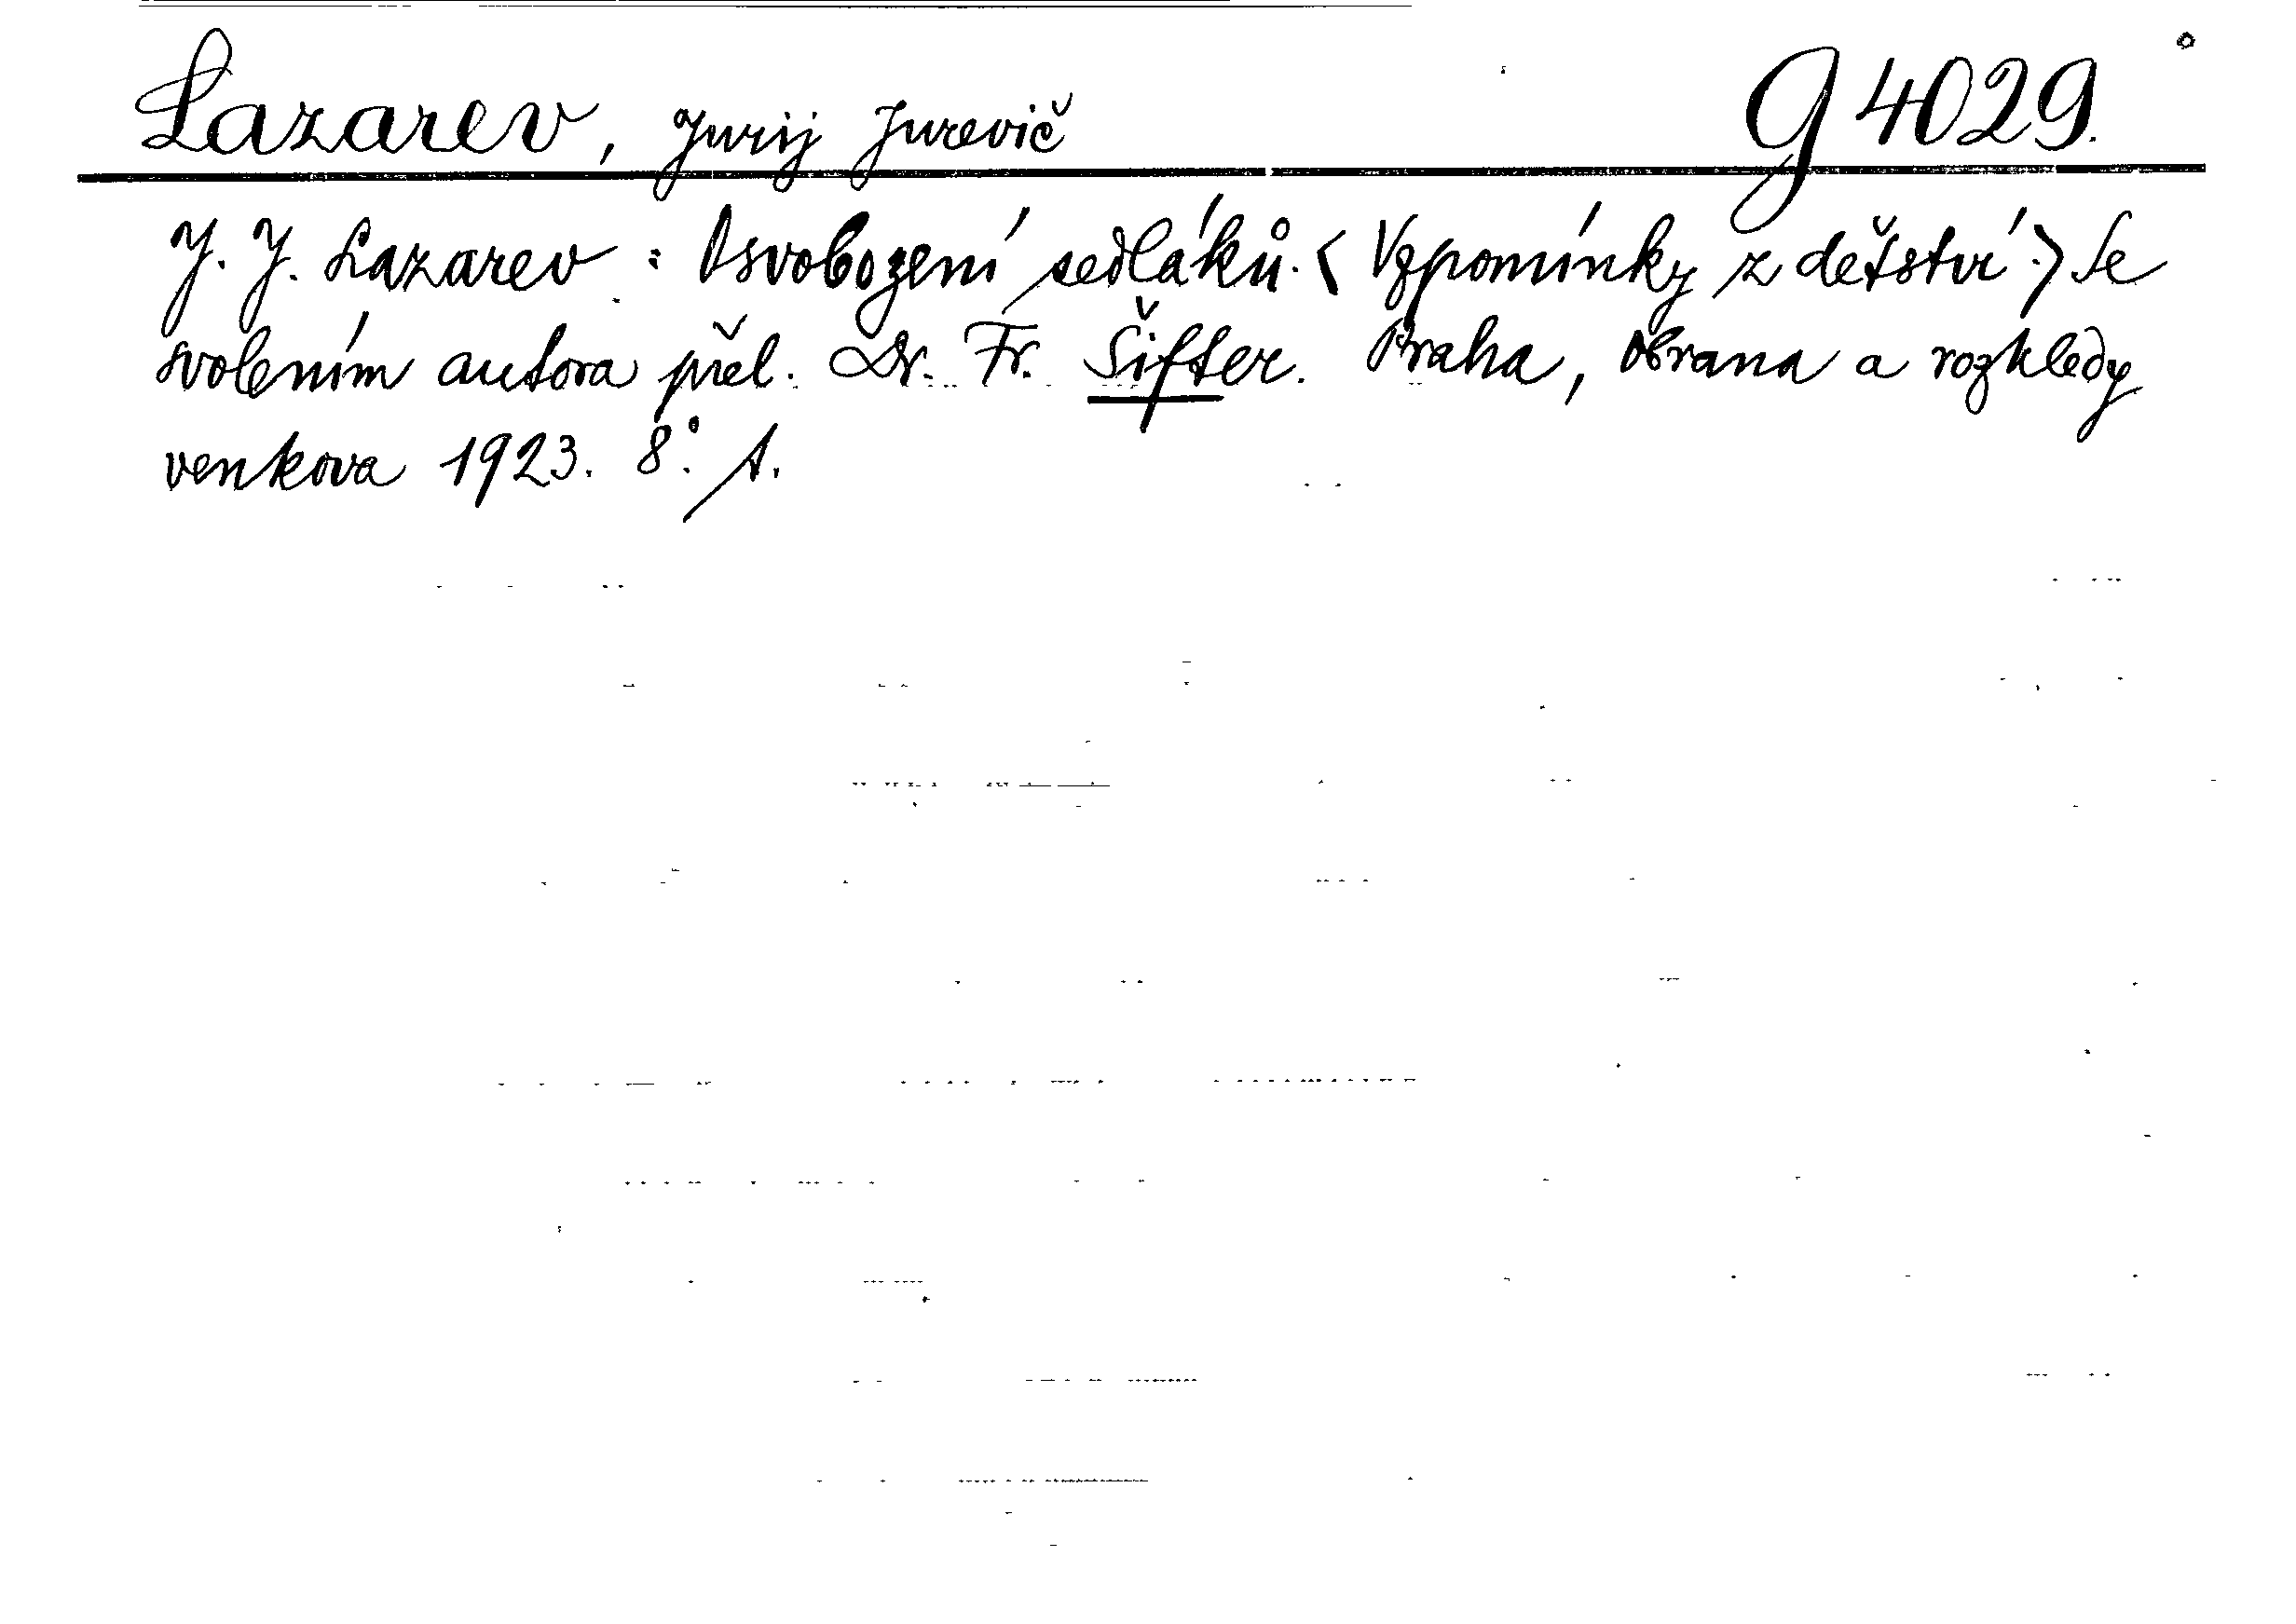 Lazarev, Jurij Jurevič G 4029.
J. J. Lazarev : Osvobození sedláků. < Vzpomínky z dětství.> Se
svolením autora přel. Dr. Fr. Šifter. Praha, Obrana a rozhledy
venkova 1923. 8°. 1.